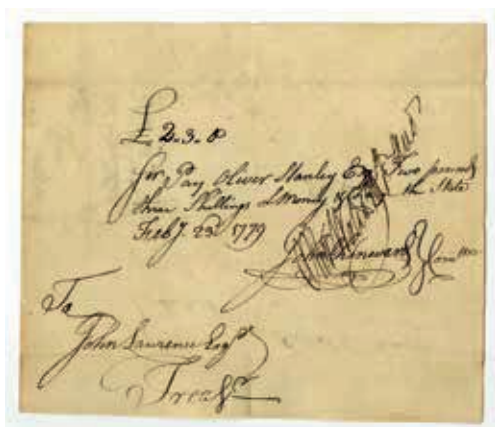 £ 2.3.0
Sir, Pay Oliver Stanley Esqr Two pounds
three Shillings LMoney & the State
Feby. 23d 1779
John Chenevard Comtte
To
John Lawrence Esqr
Treasr